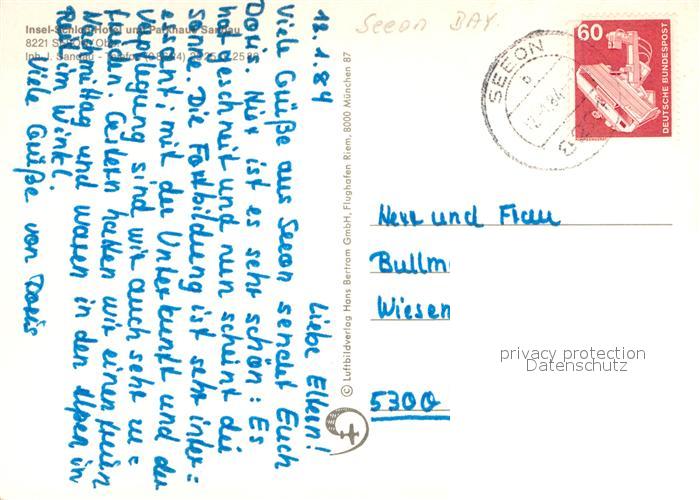 Insel-Schloß-Hotel und Parkhaus
8221 Seeon/Obb.
Seeon BAY.
18.1.84
Liebe Eltern!
Viele Grüße aus Seeon sendet Euch
Doris. Hier ist es sehr schön: Es
hat geschneit und nun scheint die
Sonne. Die Fortbildung ist sehr inter=
essant; mit der Unterkunft und der
Verpflegung sind wir auch sehr zu=
frieden. Gestern hatten wir einen freien
Nachmittag und waren in den Alpen in
Reit im Winkl.
Viele Grüße von Doris
© Luftbildverlag Hans Bertram GmbH, Flughafen Riem, 8000 München 87
SEEON
60
DEUTSCHE BUNDESPOST
Herr und Frau
Bullm
Wiesen
5300
privacy protection
Datenschutz